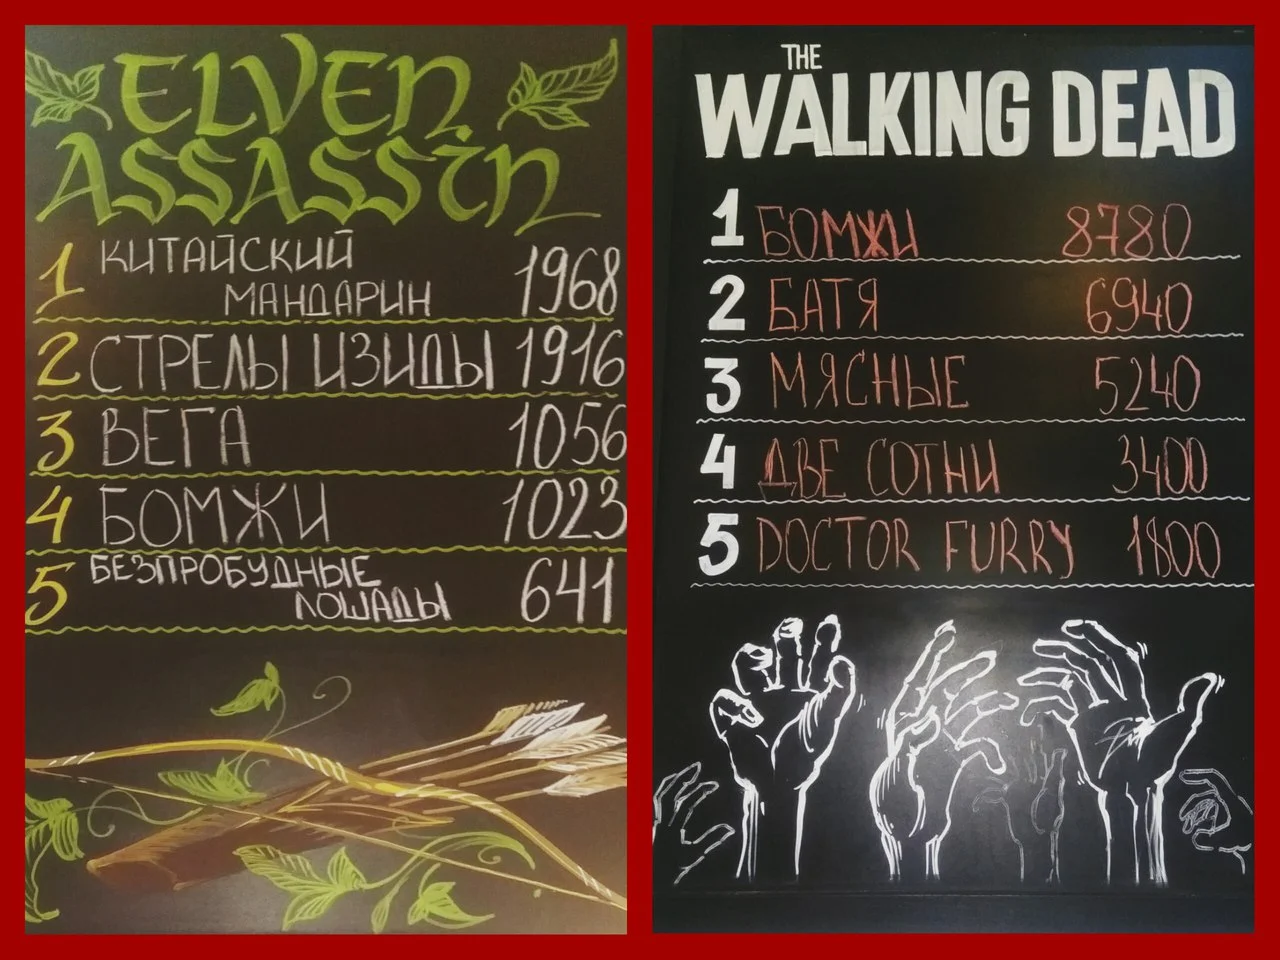 ELVEN
ASSASSIN
1 КИТАЙСКИЙ
МАНДАРИН 1968
2 СТРЕЛЫ ИЗИДЫ 1916
3 ВЕГА 1056
4 БОМЖИ 1023
5 БЕЗПРОБУДНЫЕ
ЛОШАДЫ 641
THE
WALKING DEAD
1 БОМЖИ 8780
2 БАТЯ 6940
3 МЯСНЫЕ 5240
4 ДВЕ СОТНИ 3400
5 DOCTOR FURRY 1800